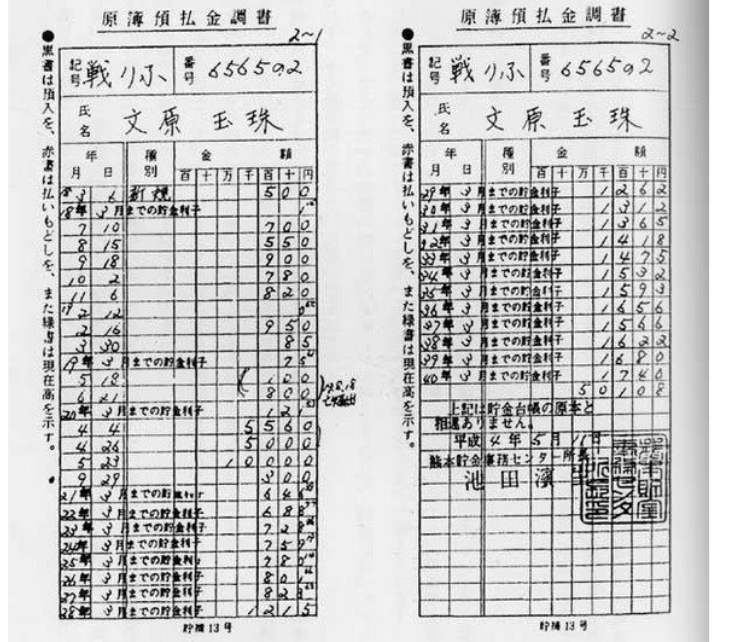 原簿預払金調書
2~1
●黒書は預入を、赤書は払いもどしを、また緑書は現在高を示す。
記号 戦りふ 番号 6565の2
氏名 文原 玉珠
年 月 日 種別 金額
百 十 万 千 百 十 円
18 3 6 新規 500
18年 3月までの貯金利子 1
7 10 700
8 15 550
9 18 900
10 2 780
11 6 820
19 2 12 0
2 16 950
3 30 85
19年 3月までの貯金利子 75
5 18 100
6 21 800
20年 3月までの貯金利子 121
4 4 5560
4 26 5000
5 23 10000
9 29 300
21年 3月までの貯金利子 646
22年 3月までの貯金利子 688
23年 3月までの貯金利子 728
24年 3月までの貯金利子 759
25年 3月までの貯金利子 780
26年 3月までの貯金利子 801
27年 3月までの貯金利子 823
28年 3月までの貯金利子 1215
貯補13号
原簿預払金調書
2~2
●黒書は預入を、赤書は払いもどしを、また緑書は現在高を示す。
記号 戦りふ 番号 6565の2
氏名 文原 玉珠
年 月 日 種別 金額
百 十 万 千 百 十 円
29年 3月までの貯金利子 1262
30年 3月までの貯金利子 1312
31年 3月までの貯金利子 1365
32年 3月までの貯金利子 1418
33年 3月までの貯金利子 1475
34年 3月までの貯金利子 1532
35年 3月までの貯金利子 1593
36年 3月までの貯金利子 1656
37年 3月までの貯金利子 1566
38年 3月までの貯金利子 1622
39年 3月までの貯金利子 1680
40年 3月までの貯金利子 1740
50108
上記は貯金台帳の原本と
相違ありません。
平成 4年 5月 11日
熊本貯金事務センター所長
池田濱
貯補13号